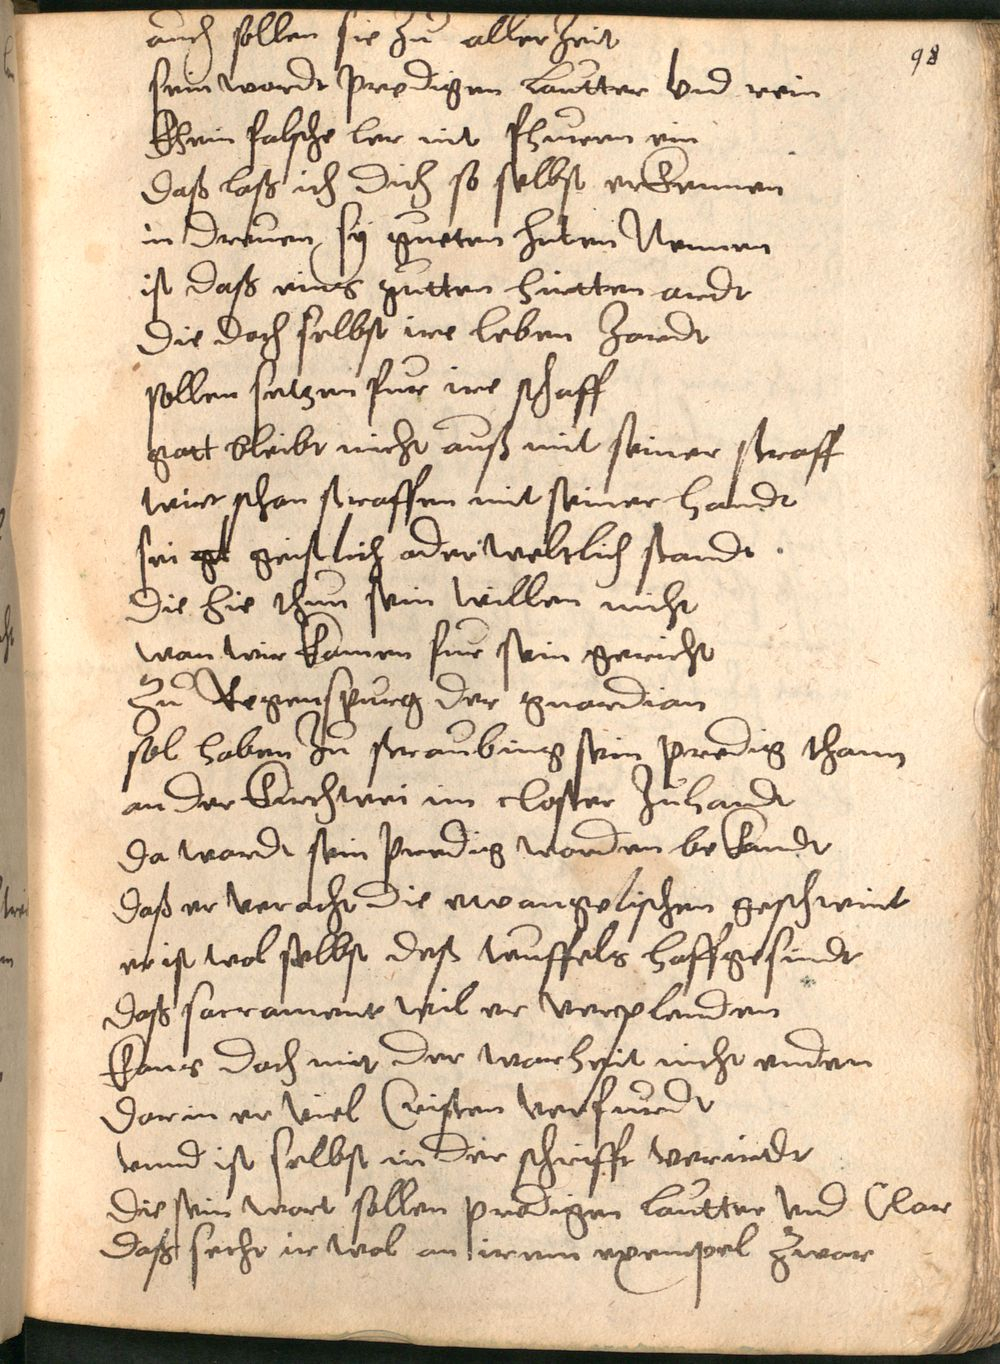 98
auch sollen sie zu aller Zeit
sein wordt predigen lautter vnd rein
Khein falsche ler nit fhueren ein
daß laß ich dich so selbst erkennen
in dreuen sy gueten hirten Nennen
ist daß eines gutten hiertten ardt
die doch selbst ire leben Zardt
sollen setzen fur ire schaff
gott bleibt nicht auß mit seiner straff
wirt schon straffen mit seiner handt
sei geistlich oder weltlich standt
die hie thun sein willen nicht
wan wir komen fur sein gericht
Zu Regenspurg der guardian
sol haben Zu straubing sein predig thann
an der Kirchwei im closter Zuhandt
da wardt sein predig worden bekandt
daß er veracht die ewangelischen geschwint
er ist wol selbst deß teuffels hoffgesindt
daß sacrament wil er verplenden
kans doch mit der warheit nicht enden
darin er viel Cristen verfuerdt
vnnd ist selbst in der schrifft verirdt
die sein wort sollen predigen lautter vnd Clar
daß secht ir wol an irem exempel zwar